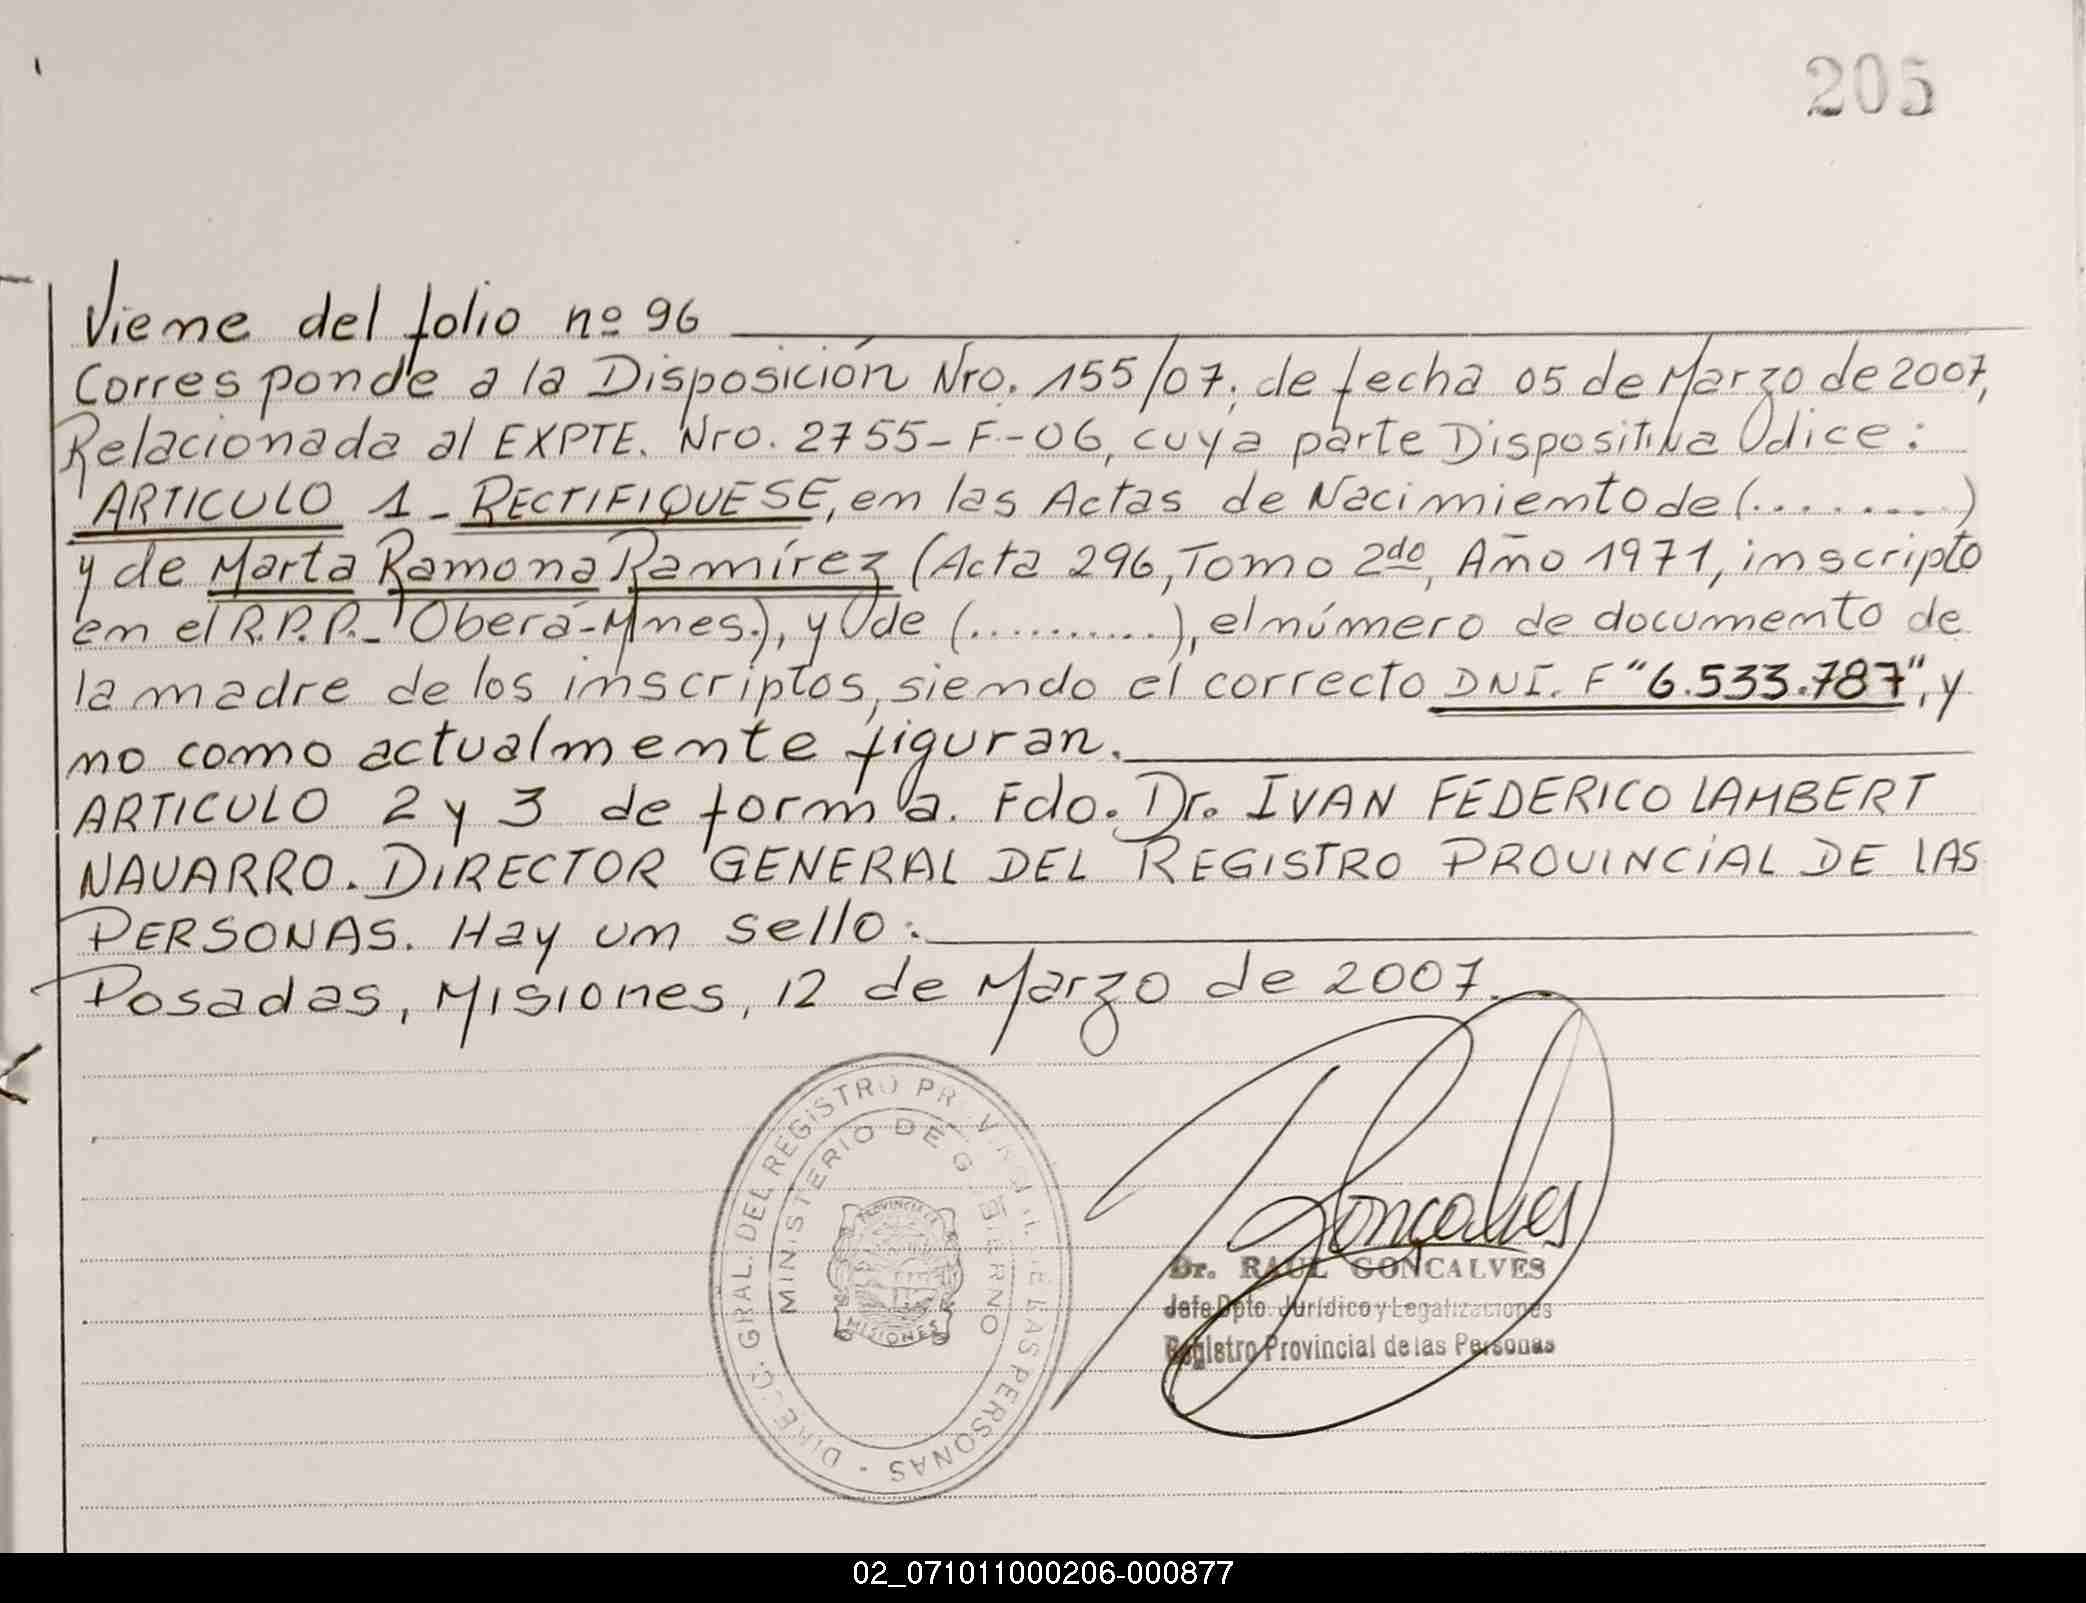 205
Viene del folio nº 96
Corresponde a la Disposición Nro. 155/07, de fecha 05 de Marzo de 2007,
Relacionada al EXPTE. Nro. 2755-F-06, cuya parte Dispositiva dice:
ARTICULO 1- RECTIFIQUESE, en las Actas de Nacimiento de (........)
y de Marta Ramona Ramírez (Acta 296, Tomo 2do, Año 1971, inscripto
en el R.P.P.- Oberá-Mnes.), y de (..........), el número de documento de
la madre de los inscriptos, siendo el correcto DNI. F "6.533.787", y
no como actualmente figuran.
ARTICULO 2 y 3 de forma. Fdo. Dr. IVAN FEDERICO LAMBERT
NAVARRO. DIRECTOR GENERAL DEL REGISTRO PROVINCIAL DE LAS
PERSONAS. Hay un sello:
Posadas, Misiones, 12 de Marzo de 2007.
DIREC. GRAL. DEL REGISTRO PROVINCIAL DE LAS PERSONAS
MINISTERIO DE GOBIERNO
PROVINCIA DE
MISIONES
Gonçalves
Dr. RAUL GONCALVES
Jefe Dpto. Jurídico y Legalizaciones
Registro Provincial de las Personas
02_071011000206-000877